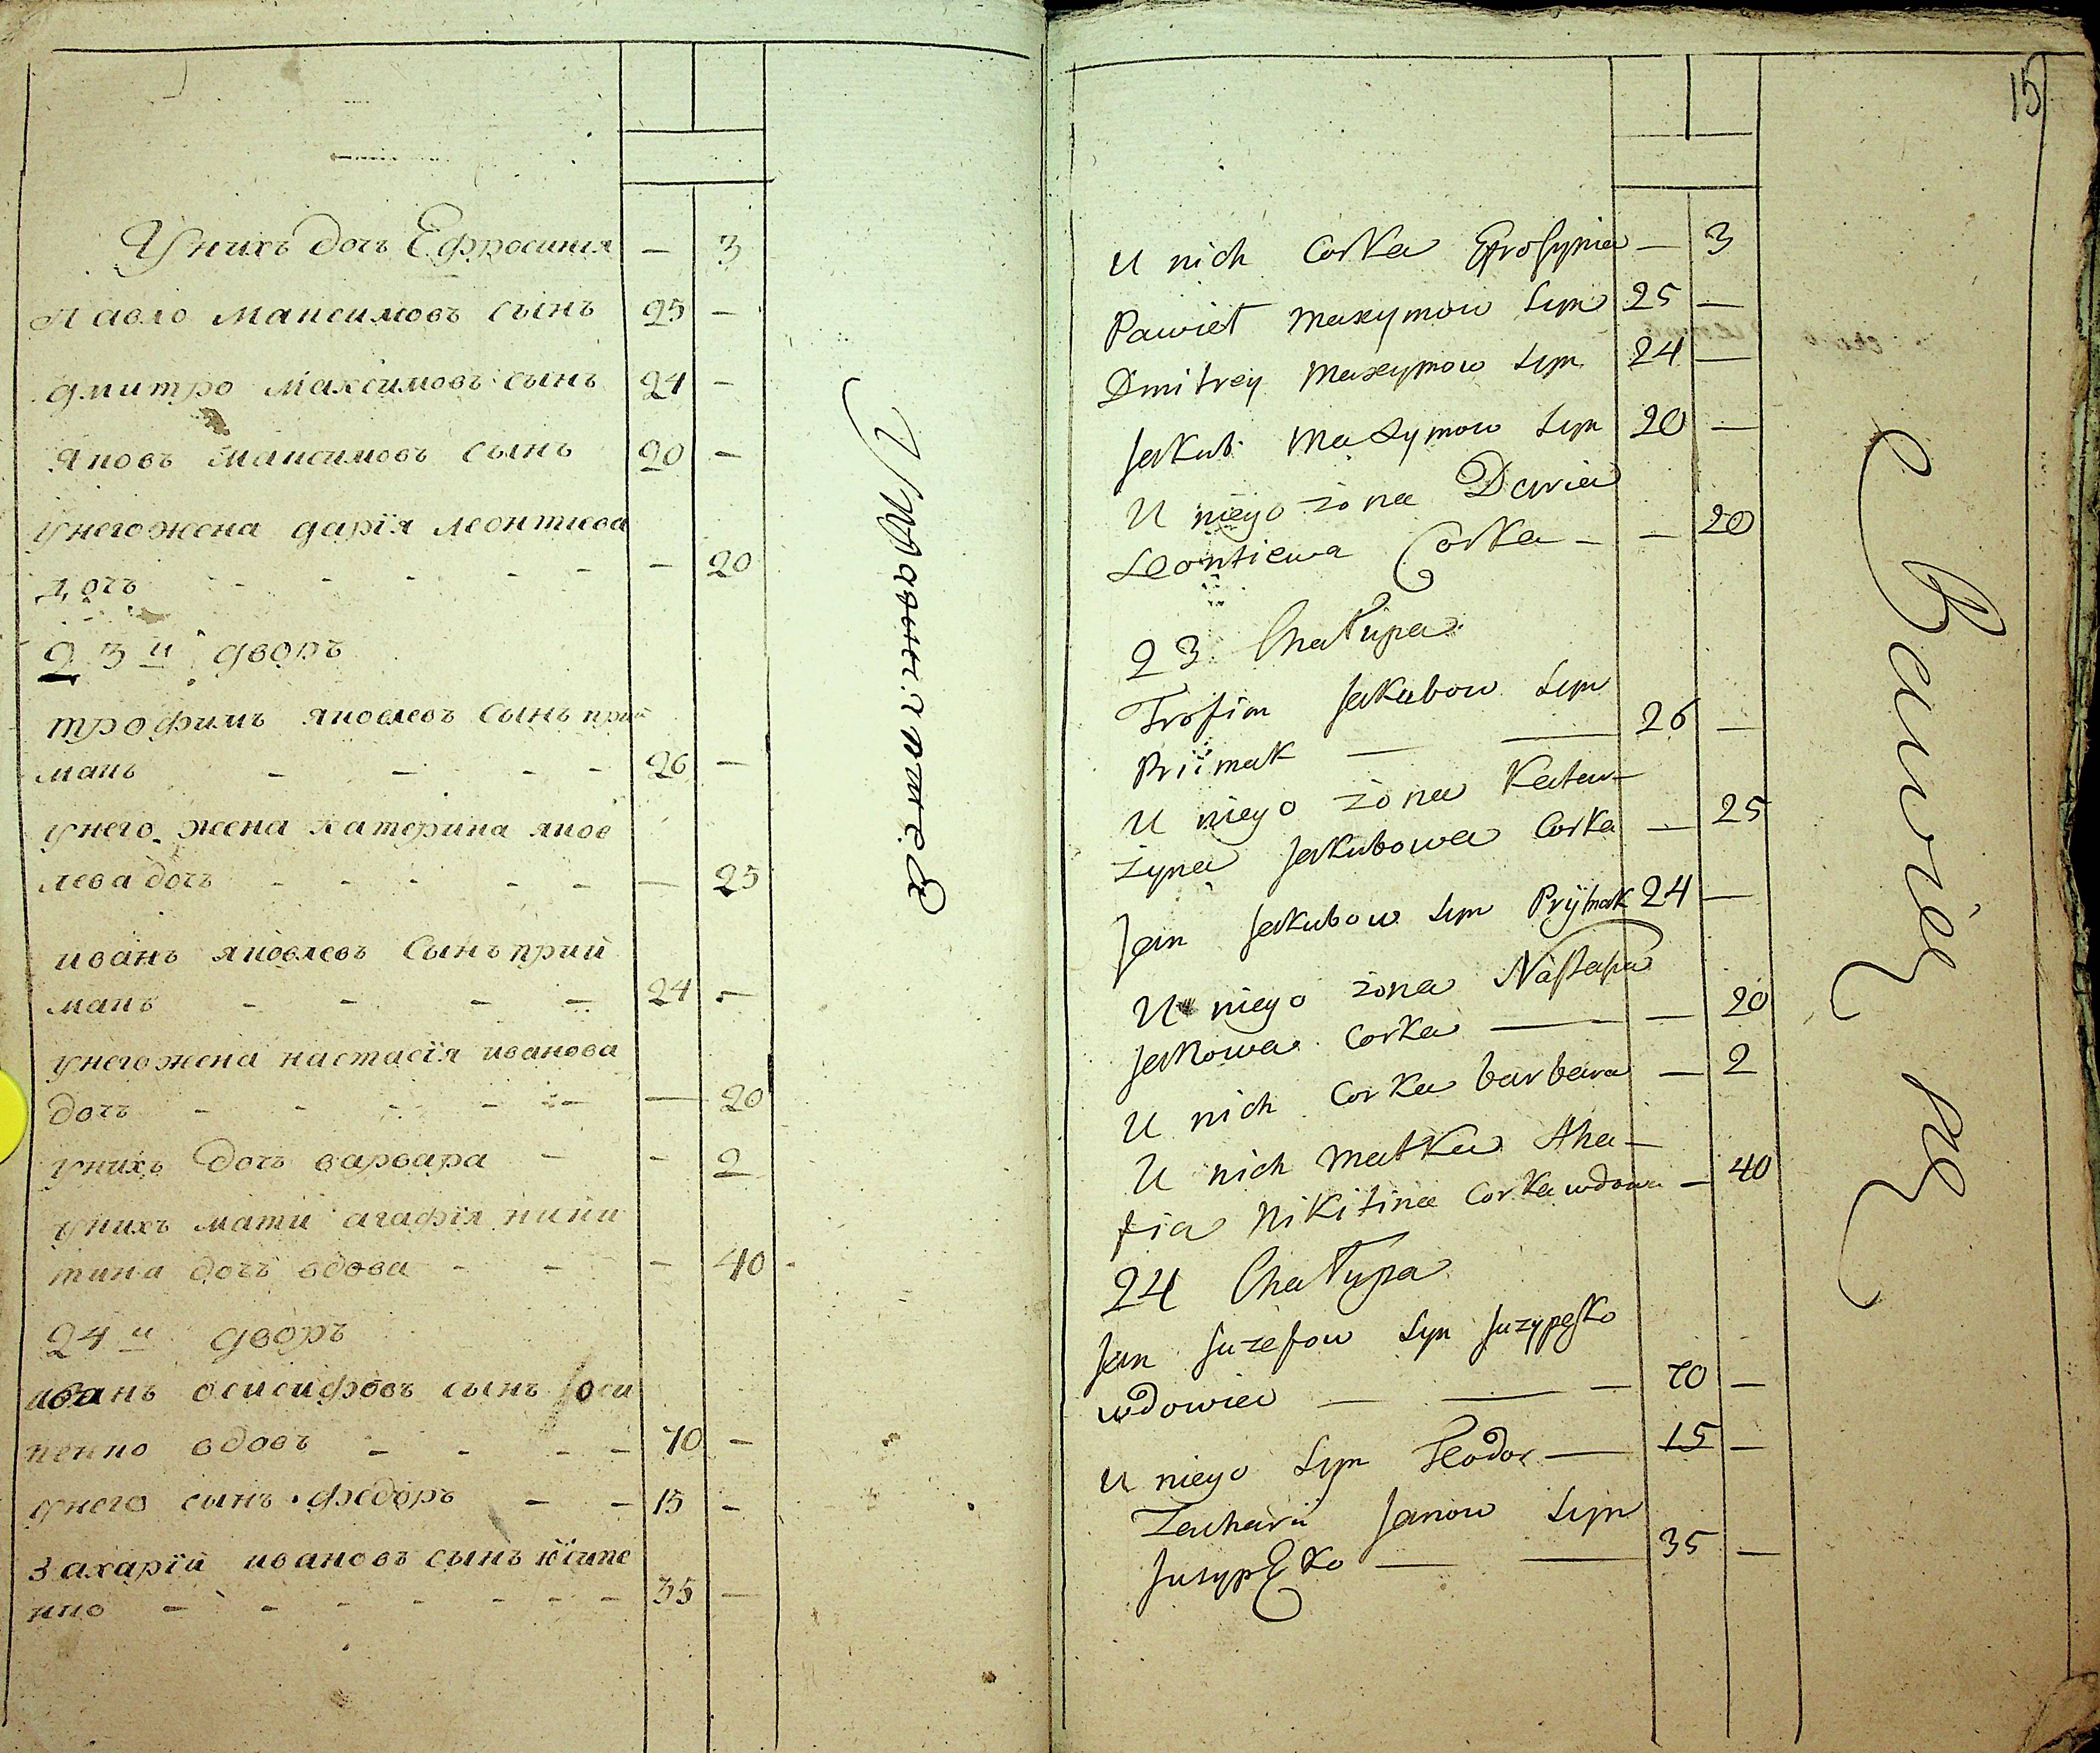 Унихъ дочъ Ефросиния — 3
Павло Максимовъ сынъ 25 —
Дмитро Максимовъ сынъ 24 —
Яковъ Максимовъ сынъ 20 —
Унего жена Дарїя Леонтиева
дочъ - - - - - — 20
23й дворъ
Трофимъ Яковлевъ сынъ прий
макъ - - - - 26 —
Унего жена Катерина Яков
лева дочъ - - - - - — 25
Иванъ Яковлевъ сынъ прий
макъ - - - - 24 —
Унего жена Настасїя Иванова
дочъ - - - - - — 20
Унихъ дочъ Варвара - - 2
Унихъ мати Агафїя Ники
тина дочъ вдова - - - 40
24й дворъ
Иванъ Осисифовъ сынъ
вдовъ - - - - 70 —
Унего сынъ Федоръ - - 15 —
Захарїй Ивановъ сынъ
35 —
15
U nich Corka Efrosynia — 3
Pawieł Maxymow Syn 25 —
Dmitrey Maxymow Syn 24 —
Jakub Maxymow Syn 20 —
U niego żona Daria
Leontiewa Corka - — 20
23 Chałupa
Trofim Jakubow Syn
Priimak — — 26 —
U niego żona Katar-
zyna Jakubowa Corka — 25
Jan Jakubow Syn Pryimak 24 —
U niego żona Nastasia
Corka — — 20
U nich Corka barbara — 2
U nich Matka Aha-
fia Nikitina Corka wdowa — 40
24 Chałupa
Jan Juzefow Syn Juzypesko
wdowiec — — — 70 —
U niego Syn Teodor — 15 —
Zacharii Janow Syn
— — 35 —